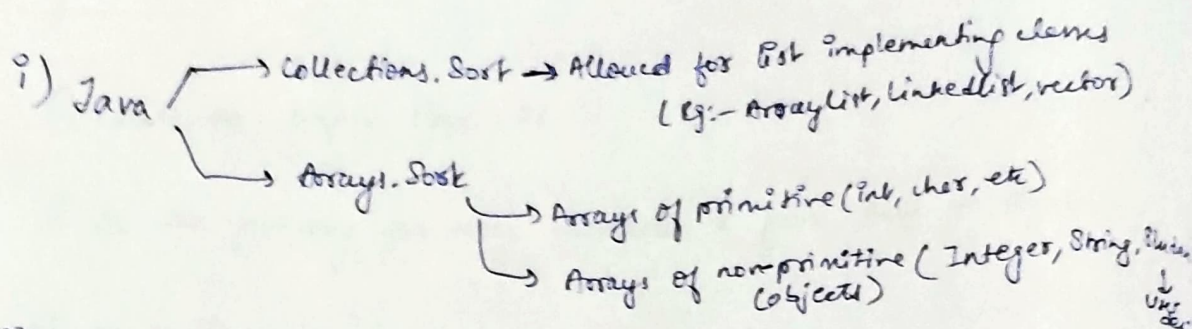 i) Java → Collections.Sort → Allowed for List implementing classes
(Eg:- ArrayList, Linkedlist, vector)
→ Arrays.Sort
→ Arrays of primitive (int, char, etc)
→ Arrays of nonprimitive (Integer, String,
(objects)